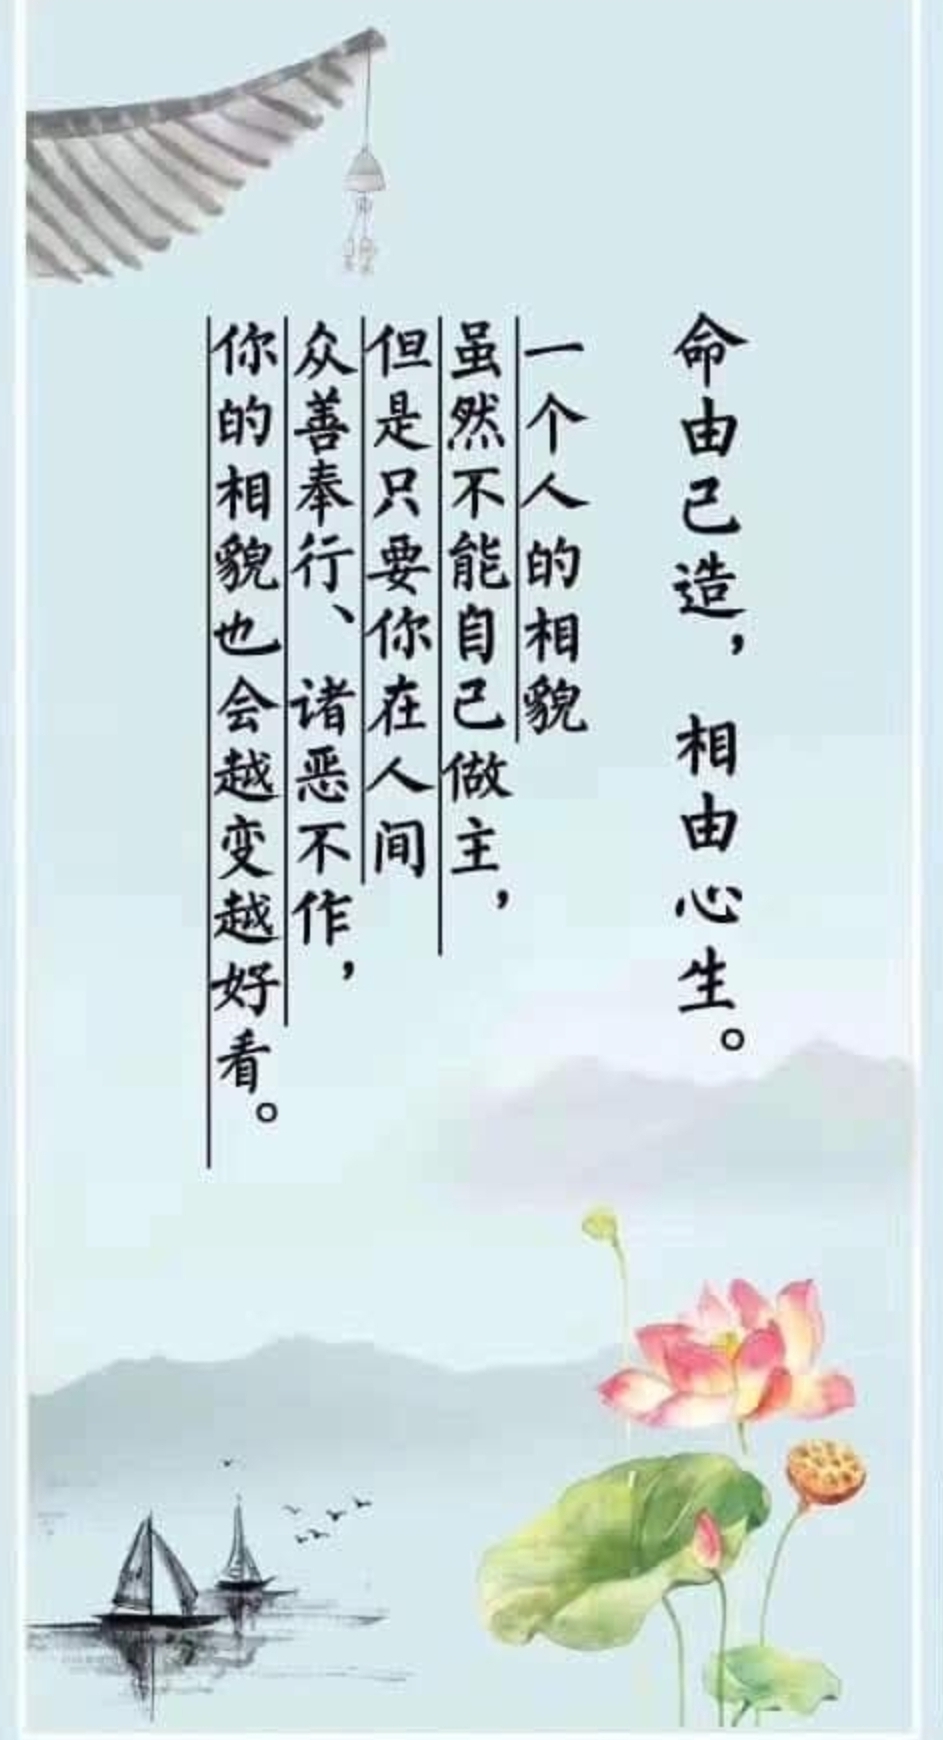 命由己造，相由心生。
一个人的相貌
虽然不能自己做主，
但是只要你在人间
众善奉行、诸恶不作，
你的相貌也会越变越好看。